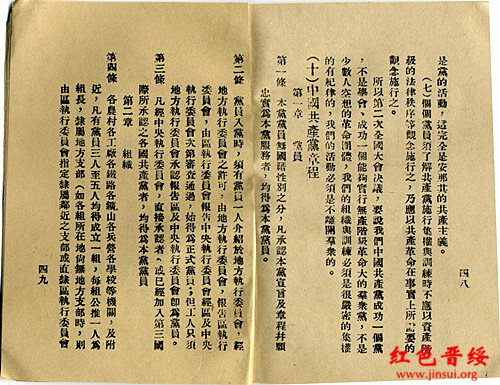 是黨的活動，這完全是安那其的共產主義。
（七）個個黨員須了解共產黨施行集權與訓練時不應以資產階
級的法律秩序等觀念施行之，乃應以共產革命在事實上所需要的
觀念施行之。
所以第二次全國大會決議，要說我們中國共產黨成功一個黨
，不是學會，成功一個能夠實行無產階級革命大的羣衆黨，不是
少數人空想的革命團體，我們的組織與訓練必須是很嚴密的集權
的有紀律的，我們的活動必須是不離開羣衆的。
（十）中國共產黨章程
第一章　黨員
第一條　本黨黨員無國籍性別之分，凡承認本黨宣言及章程并願
忠實爲本黨服務者，均得爲本黨黨員。
四八
第二條　黨員入黨時，須有黨員一人介紹於地方執行委員會，經
地方執行委員會之許可，由地方執行委員會，報告區執行
委員會，由區執行委員會報告中央執行委員會經區及中央
執行委員會次第審查通過，始得爲正式黨員；但工人只須
地方執行委員會承認報告區及中央執行委員會即爲黨員。
第三條　凡經中央執行委員會，直接承認者，或已經加入第三國
際所承認之各國共產黨者，均得爲本黨黨員
第二章　組織
第四條　各農村各工廠各鐵路各鑛山各兵營各學校等機關，及附
近，凡有黨員三人至五人均得成立一組，每組公推一人爲
組長，隸屬地方支部（如各組所在地尙無地方支部時，則
由區執行委員會指定隸屬鄰近之支部或直隸區執行委員會
四九
红色晋绥
www.jinsui.org